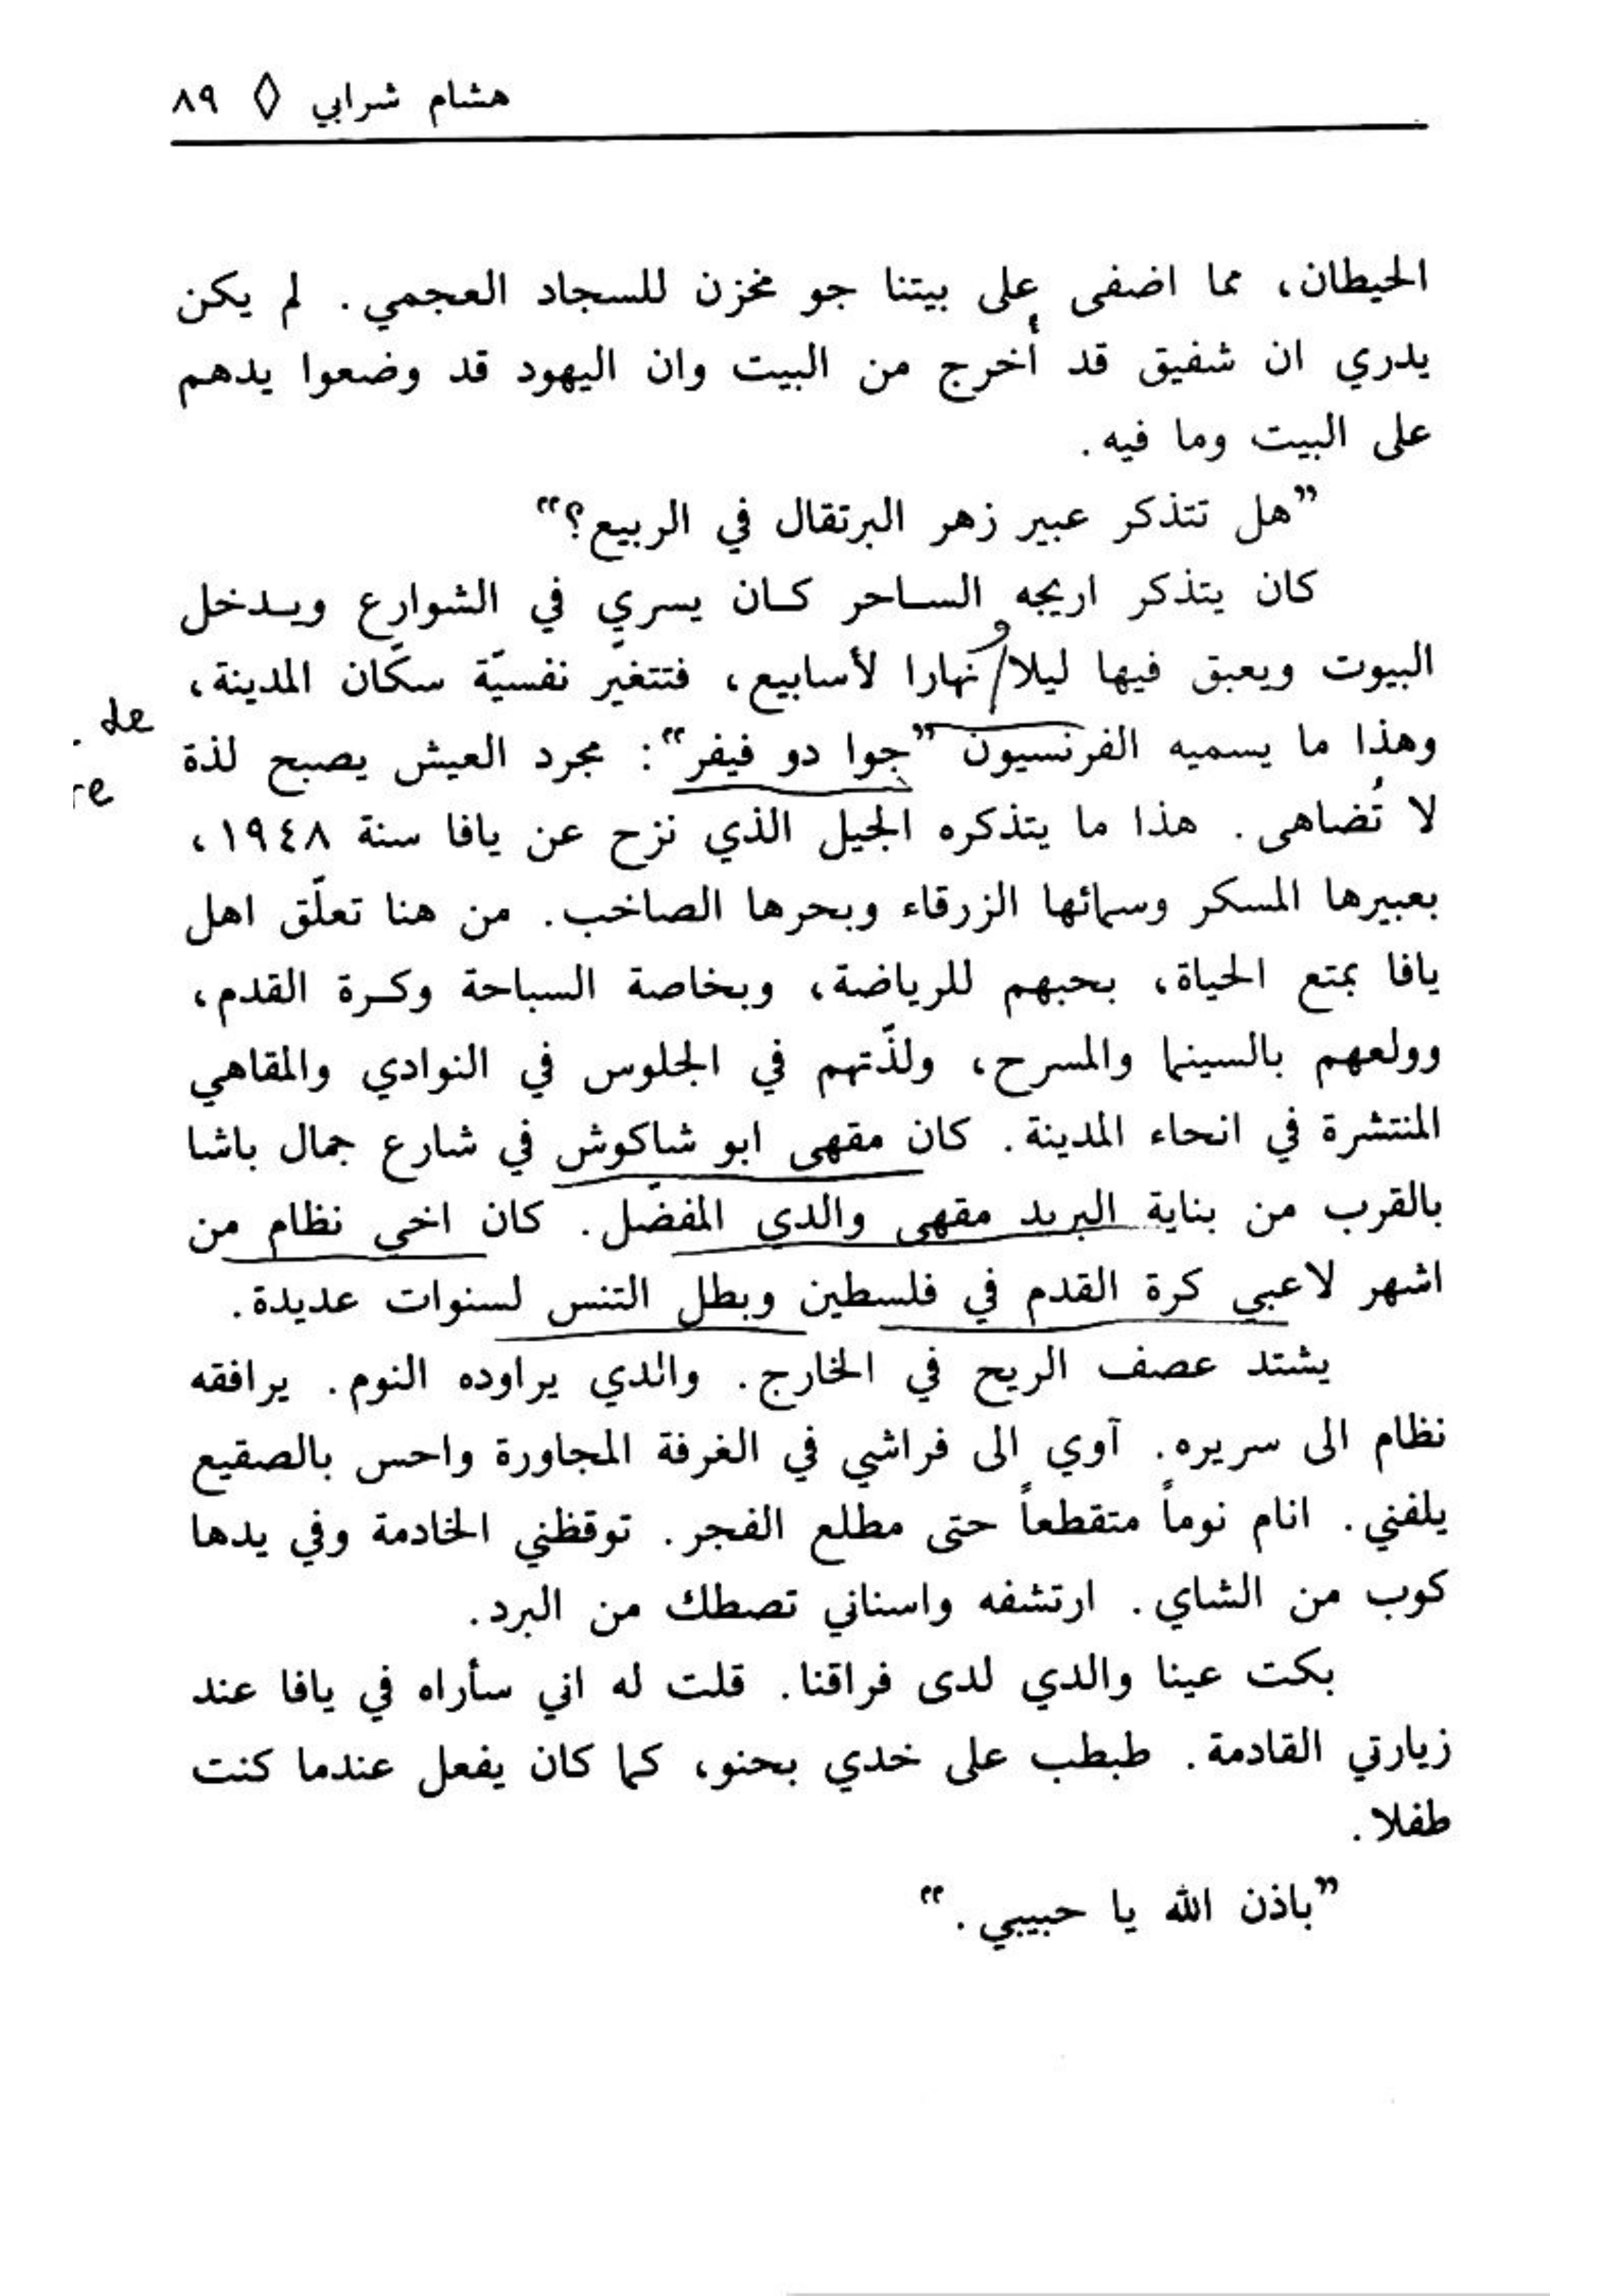 هشام شرابي ◊ ٨٩
الحيطان، مما اضفى على بيتنا جو مخزن للسجاد العجمي. لم يكن
يدري ان شفيق قد أخرج من البيت وان اليهود قد وضعوا يدهم
على البيت وما فيه.
”هل تتذكر عبير زهر البرتقال في الربيع؟“
كان يتذكر اريجه الساحر كان يسري في الشوارع ويدخل
البيوت ويعبق فيها ليلا/ونهارا لأسابيع، فتتغيّر نفسيّة سكّان المدينة،
وهذا ما يسميه الفرنسيون ”جوا دو فيفر“: مجرد العيش يصبح لذة
de
re
لا تُضاهى. هذا ما يتذكره الجيل الذي نزح عن يافا سنة ١٩٤٨،
بعبيرها المسكر وسمائها الزرقاء وبحرها الصاخب. من هنا تعلّق اهل
يافا بمتع الحياة، بحبهم للرياضة، وبخاصة السباحة وكرة القدم،
وولعهم بالسينما والمسرح، ولذّتهم في الجلوس في النوادي والمقاهي
المنتشرة في انحاء المدينة. كان مقهى ابو شاكوش في شارع جمال باشا
بالقرب من بناية البريد مقهى والدي المفضّل. كان اخي نظام من
اشهر لاعبي كرة القدم في فلسطين وبطل التنس لسنوات عديدة.
يشتد عصف الريح في الخارج. والدي يراوده النوم. يرافقه
نظام الى سريره. آوي الى فراشي في الغرفة المجاورة واحس بالصقيع
يلفني. انام نوماً متقطعاً حتى مطلع الفجر. توقظني الخادمة وفي يدها
كوب من الشاي. ارتشفه واسناني تصطك من البرد.
بكت عينا والدي لدى فراقنا. قلت له اني سأراه في يافا عند
زيارتي القادمة. طبطب على خدي بحنو، كما كان يفعل عندما كنت
طفلا.
”باذن الله يا حبيبي.“